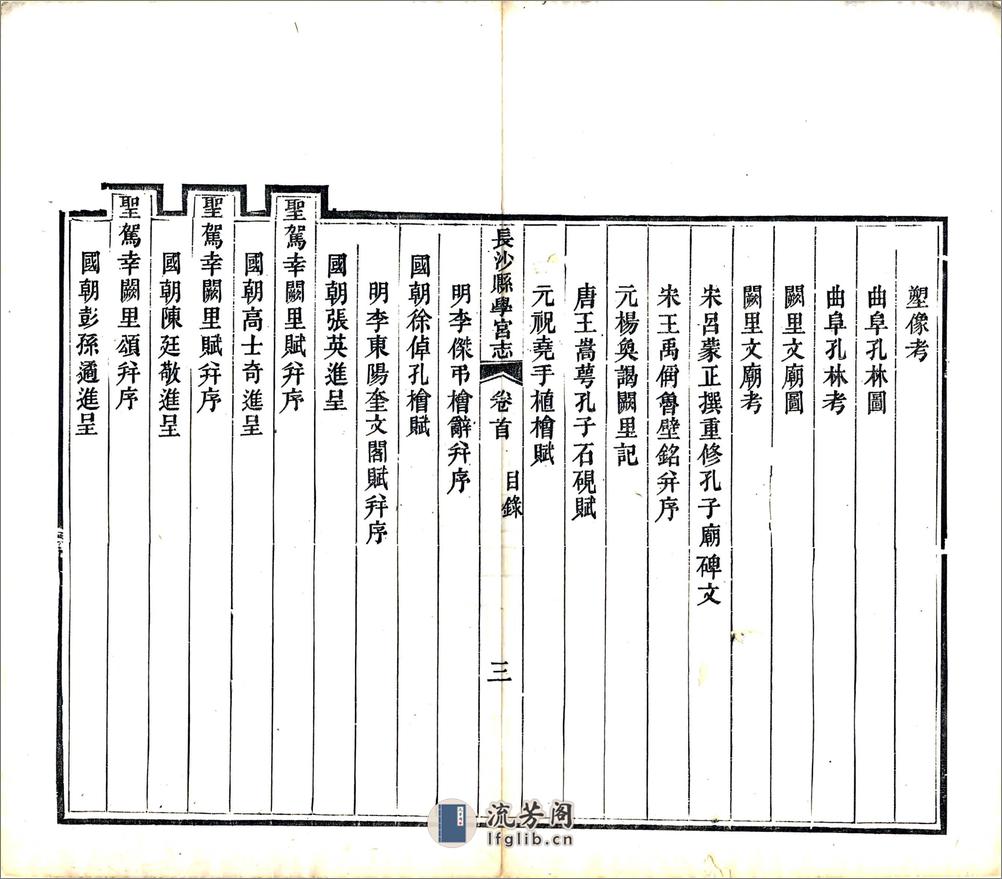 塑像考
曲阜孔林圖
曲阜孔林考
闕里文廟圖
闕里文廟考
宋呂蒙正撰重修孔子廟碑文
宋王禹偁魯壁銘并序
元楊奐謁闕里記
唐王嵩萼孔子石硯賦
元祝堯手植檜賦
長沙縣學宮志 卷首 目錄 三
明李傑弔檜辭并序
國朝徐倬孔檜賦
明李東陽奎文閣賦并序
國朝張英進呈
聖駕幸闕里賦并序
國朝高士奇進呈
聖駕幸闕里賦并序
國朝陳廷敬進呈
聖駕幸闕里頌并序
國朝彭孫遹進呈
流芳阁
lfglib.cn